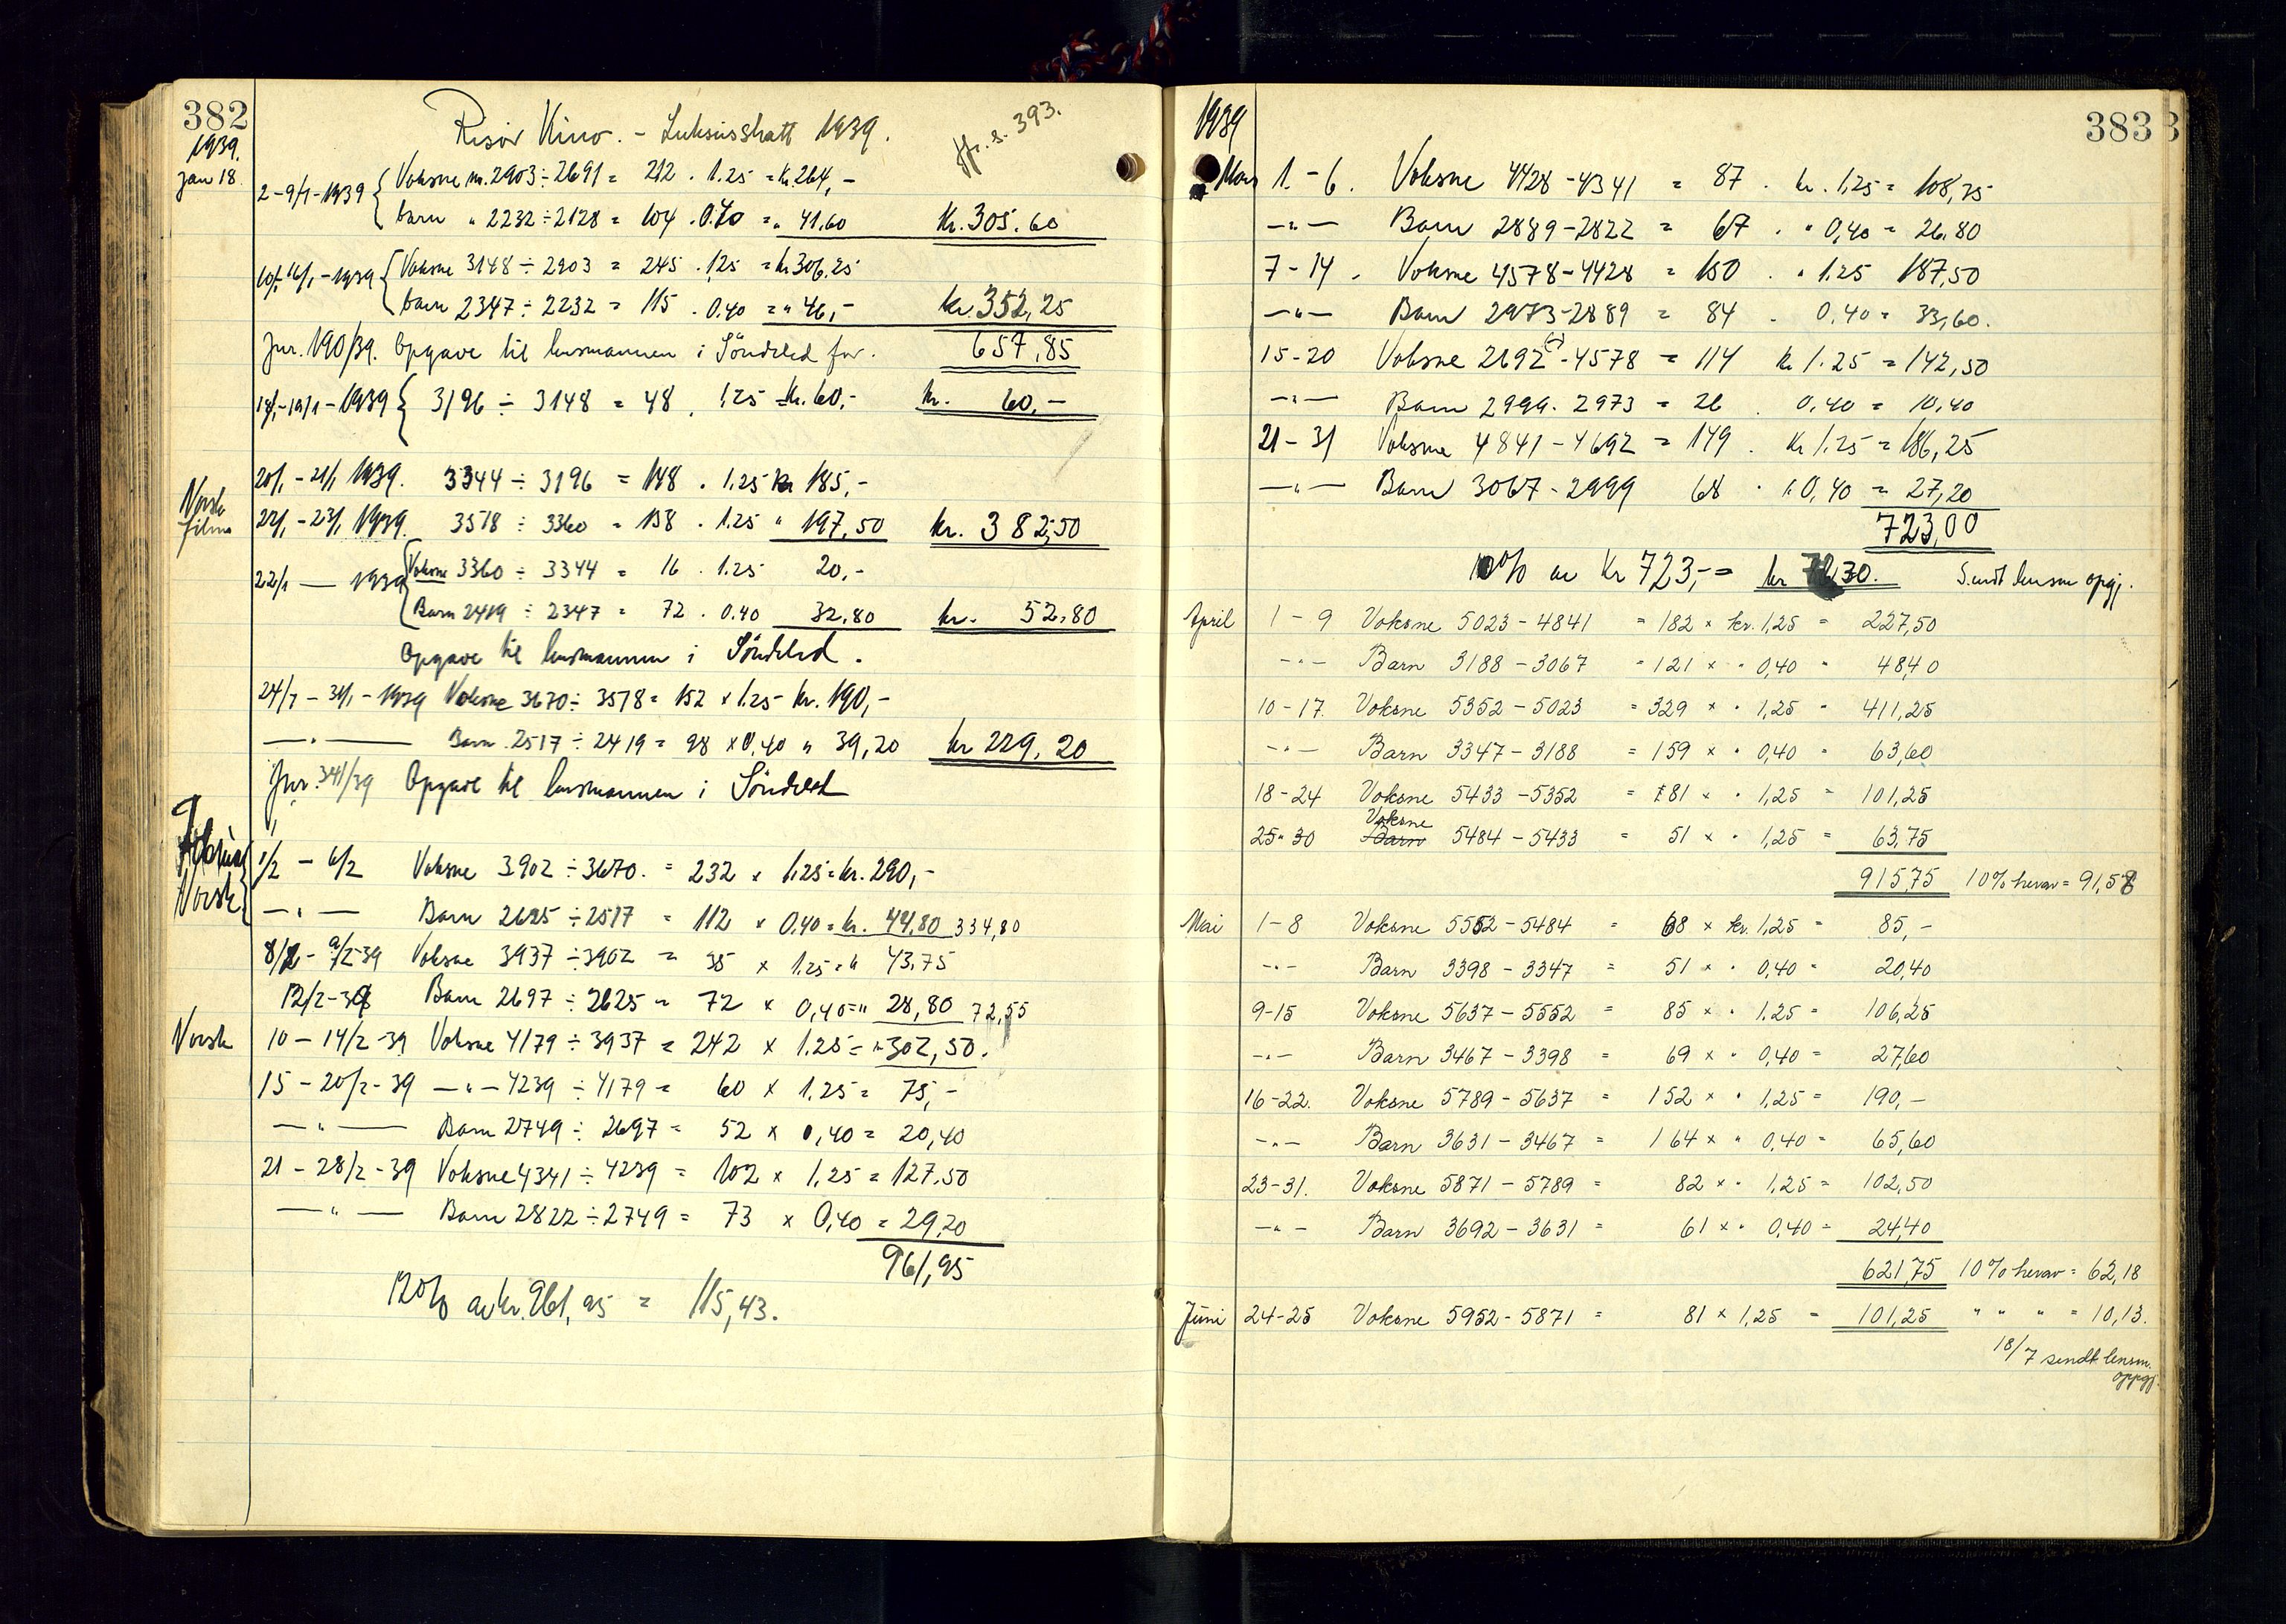 382
Risør Kino. - Luksusskatt 1939.
jfr. s. 393.
1939.
Jan 18.
2-9/1-1939 Voksne nr. 2903 ÷ 2691 = 212 . 1.25 = kr. 264,-
barn " 2232 ÷ 2128 = 104 . 0.40 = " 41,60 Kr. 305.60
10/1-16/1-1939 Voksne 3148 ÷ 2903 = 245 . 1,25 = kr 306.25
barn 2347 ÷ 2232 = 115 . 0.40 = " 46,- kr. 352,25
Jnr. 190/39. Opgave til lensmannen i Söndeled for. 657,85
18/1-19/1-1939 3196 ÷ 3148 = 48 . 1.25 = kr. 60,- kr. 60.-
20/1-21/1 1939. 3344 ÷ 3196 = 148 . 1.25 kr 185,-
Norsk film
22/1-23/1 1939. 3518 ÷ 3360 = 158 . 1.25 " 197,50 kr. 382,50
22/1 — 1939 Voksne 3360 ÷ 3344 = 16 . 1.25 20,-
Barn 2419 ÷ 2347 = 72 . 0.40 32.80 kr. 52.80
Opgave til lensmannen i Söndeled.
24/1-31/1-1939 Voksne 3670 ÷ 3518 = 152 x 1.25 kr. 190,-
— " — Barn 2517 ÷ 2419 = 98 x 0,40 " 39,20 kr 229.20
Jnr. 341/39 Opgave til lensmannen i Söndeled
Februar
Norsk
1/2 - 6/2 Voksne 3902 ÷ 3670. = 232 x 1.25 = kr. 290,-
— " — Barn 2625 ÷ 2517 = 112 x 0,40 = kr. 44,80 334,80
8/2 - 9/2-39 Voksne 3937 ÷ 3902 = 35 x 1.25 = " 43.75
12/2-39 Barn 2697 ÷ 2625 = 72 x 0,40 = " 28,80 72,55
Norsk 10 - 14/2-39 Voksne 4179 ÷ 3937 = 242 x 1.25 = " 302,50.
15 - 20/2-39 — " — 4239 ÷ 4179 = 60 x 1.25 = 75,-
— " — Barn 2749 ÷ 2697 = 52 x 0,40 = 20,40
21 - 28/2-39 Voksne 4341 ÷ 4239 = 102 x 1,25 = 127.50
— " — Barn 2822 ÷ 2749 = 73 x 0,40 = 29,20
961,95
12% av kr. 961,95 = 115,43.
1939
383
Mars 1. - 6. Voksne 4428 - 4341 = 87 . kr. 1,25 = 108,75
— " — Barn 2889 - 2822 = 67 . " 0,40 = 26.80
7 - 14 . Voksne 4578 - 4428 = 150 . " 1.25 187,50
— " — Barn 2973 - 2889 = 84 . 0,40 = 33,60.
15 - 20 Voksne 2692 (4) - 4578 = 114 kr 1.25 = 142,50
— " — Barn 2999 - 2973 = 26 . 0,40 = 10,40
21 - 31 Voksne 4841 - 4692 = 149 . kr 1.25 = 186,25
— " — Barn 3067 - 2999 68 . " 0,40 = 27,20
723,00
10% av kr 723,- = kr 72,30. Sendt lensm opgj.
April 1 - 9 Voksne 5023 - 4841 = 182 x kr. 1,25 = 227,50
- " - Barn 3188 - 3067 = 121 x " 0,40 = 48,40
10 - 17. Voksne 5352 - 5023 = 329 x " 1,25 = 411,25
- " - Barn 3347 - 3188 = 159 x " 0,40 = 63,60
18 - 24 Voksne 5433 - 5352 = 81 x " 1,25 = 101,25
Voksne
25 - 30 Barn 5484 - 5433 = 51 x " 1,25 = 63,75
915,75 10% herav = 91,58
Mai 1 - 8 Voksne 5552 - 5484 = 68 x kr. 1,25 = 85,-
- " - Barn 3398 - 3347 = 51 x " 0,40 = 20,40
9-15 Voksne 5637 - 5552 = 85 x " 1.25 = 106,25
- " - Barn 3467 - 3398 = 69 x " 0,40 = 27,60
16 - 22. Voksne 5789 - 5637 = 152 x " 1,25 = 190,-
- " - Barn 3631 - 3467 = 164 x " 0,40 = 65,60
23 - 31. Voksne 5871 - 5789 = 82 x " 1,25 = 102,50
- " - Barn 3692 - 3631 = 61 x " 0,40 = 24,40
621,75 10% herav = 62,18
Juni 24-25 Voksne 5952 - 5871 = 81 x 1,25 = 101,25 " " " = 10,13.
18/7 sendt lensm.
oppgj.